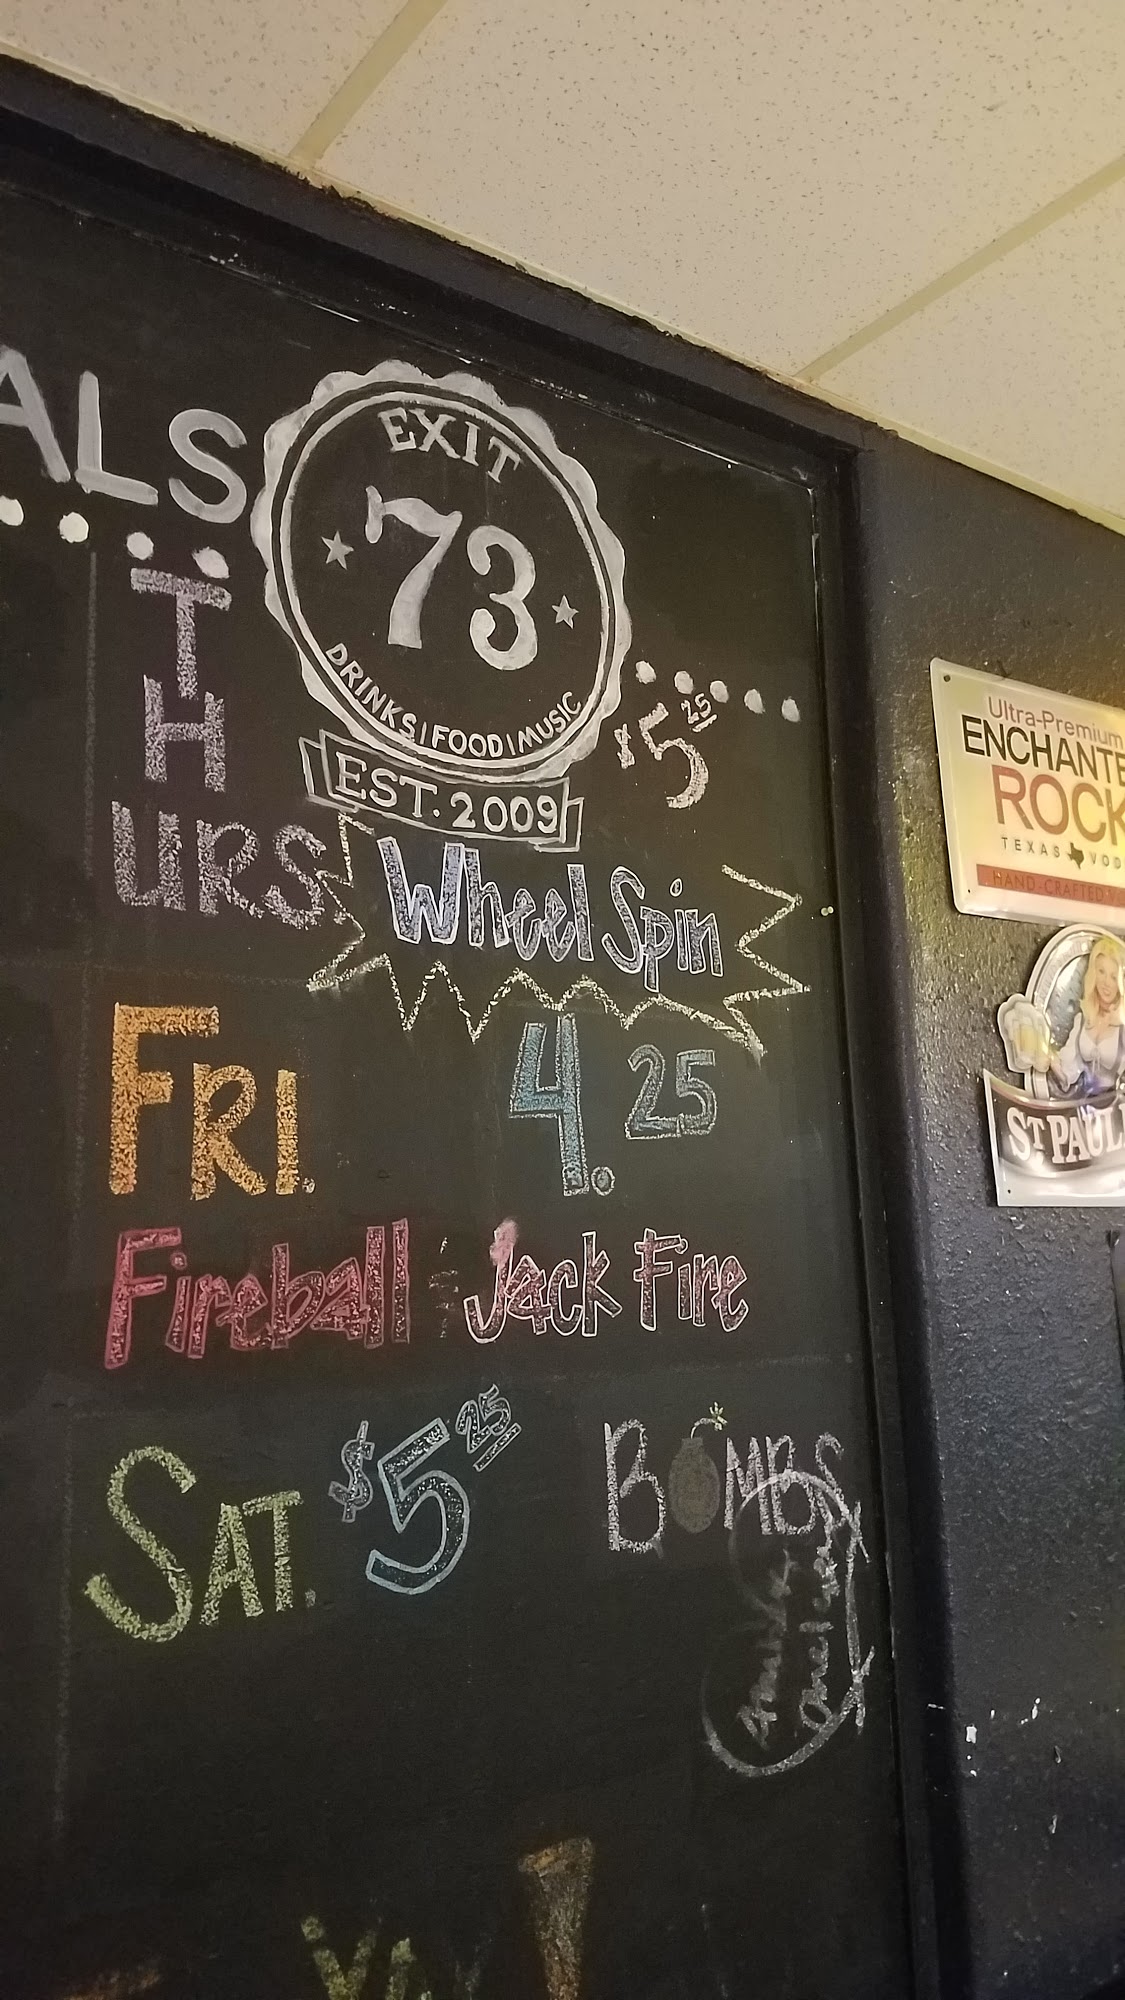 ALS
EXIT
73
DRINKS|FOOD|MUSIC
EST. 2009
THURS
$5 25
Wheel Spin
FRI.
4. 25
Fireball Jack Fire
SAT. $5 25
BOMBS
Ultra-Premium
ENCHANTE
ROCK
TEXAS VOD
HAND-CRAFTED
ST PAUL